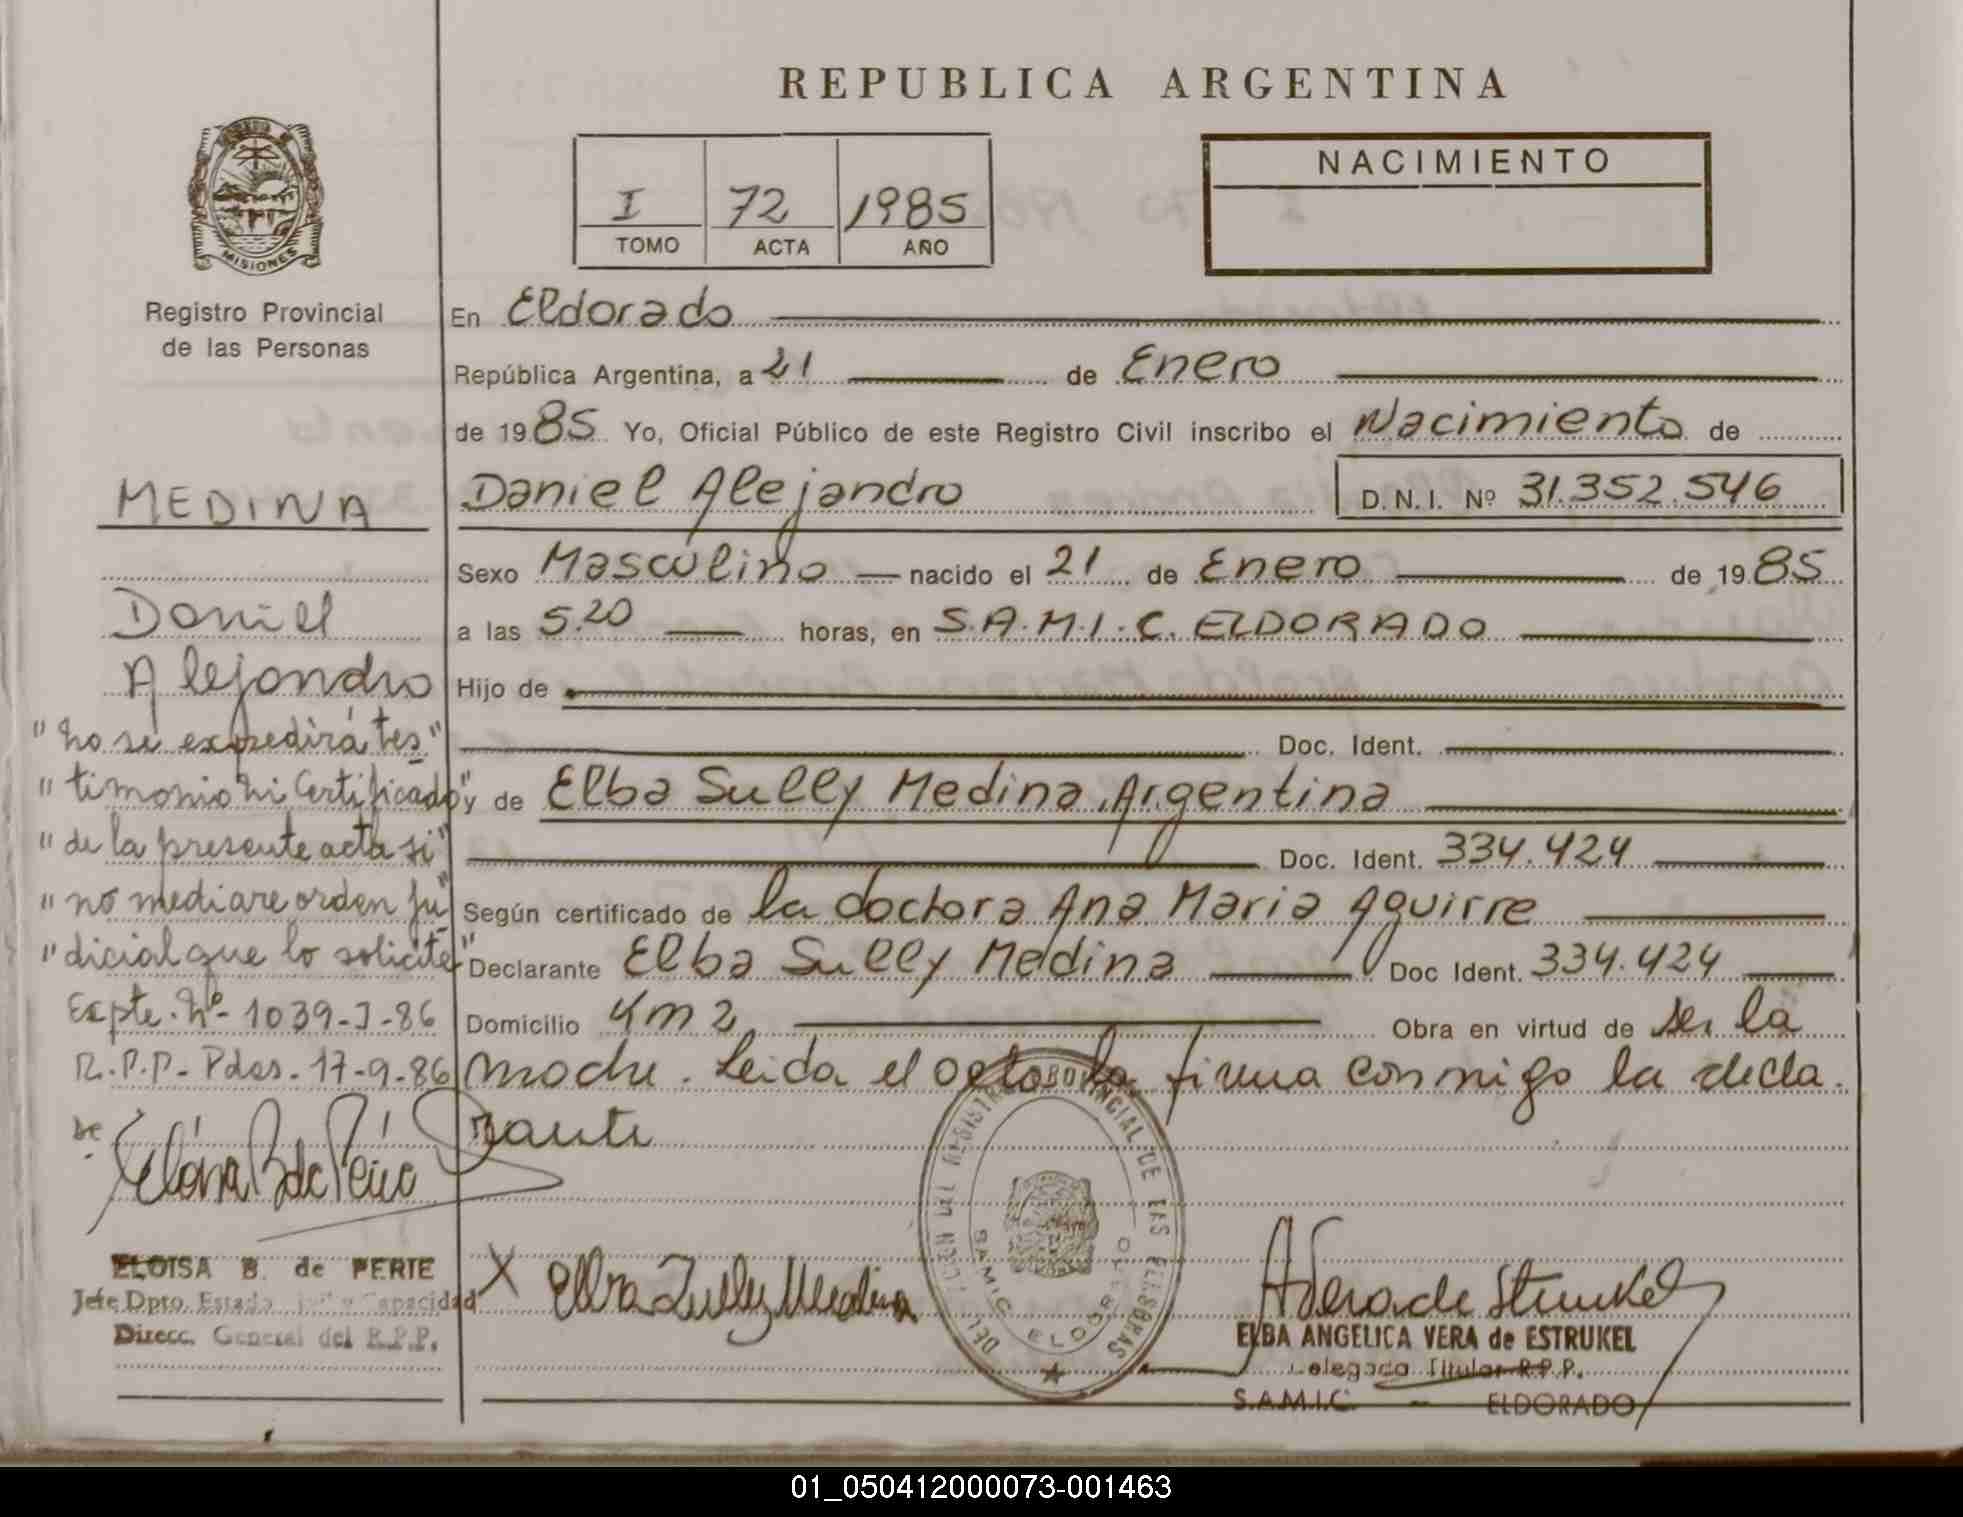 REPUBLICA ARGENTINA
MISIONES
Registro Provincial
de las Personas
I 72 1985
TOMO ACTA AÑO
NACIMIENTO
En Eldorado
República Argentina, a 21 de Enero
de 1985 Yo, Oficial Público de este Registro Civil inscribo el Nacimiento de
MEDINA
Daniel Alejandro D.N.I. Nº 31.352.546
Sexo Masculino nacido el 21 de Enero de 1985
Daniel
a las 5.20 horas, en S.A.M.I.C. ELDORADO
Alejandro
Hijo de
"no se expedirá tes"
"timonio ni Certificado"
"de la presente acta si"
"no mediare orden ju"
"dicial que lo solicite"
Expte. Nº- 1039-J-86
R.P.P.- Pdas. 17-9-86
Doc. Ident.
y de Elba Sully Medina, Argentina
Doc. Ident. 334.424
Según certificado de la doctora Ana Maria Aguirre
Declarante Elba Sully Medina Doc Ident. 334.424
Domicilio Km 2 Obra en virtud de ser la
madre. Leida el acta la firma conmigo la decla
rante
ELOISA B. de PERIE
Jefe Dpto. Estado Civil y Capacidad
Direcc. General del R.P.P.
X Elba Zully Medina
DEL REGISTRO PROVINCIAL DE LAS PERSONAS
SAMIC ELDORADO
A Vera de Strukel
ELBA ANGELICA VERA de ESTRUKEL
Delegada Titular R.P.P.
S.A.M.I.C. - ELDORADO
01_050412000073-001463